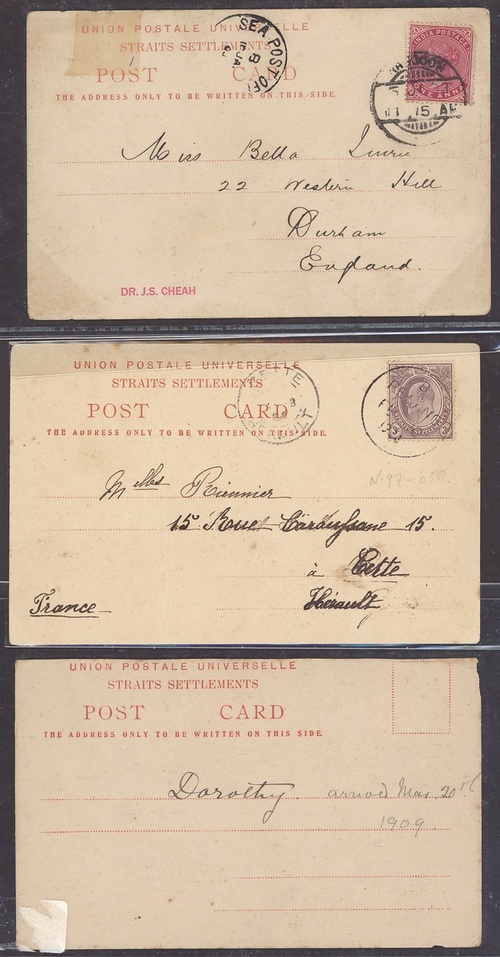 UNION POSTALE UNIVERSELLE
STRAITS SETTLEMENTS
POST CARD
THE ADDRESS ONLY TO BE WRITTEN ON THIS SIDE.
SEA POST OFF
B
JA
INDIA POSTAGE
ONE ANNA
15 AM
Miss Bella
22 Western Hill
Durham
England.
DR. J.S. CHEAH
UNION POSTALE UNIVERSELLE
STRAITS SETTLEMENTS
POST CARD
THE ADDRESS ONLY TO BE WRITTEN ON THIS SIDE.
N-97-050.
Melles
15 15.
à Cette
Hérault
France
UNION POSTALE UNIVERSELLE
STRAITS SETTLEMENTS
POST CARD
THE ADDRESS ONLY TO BE WRITTEN ON THIS SIDE.
Dorothy. arrived Mar 20th
1909.